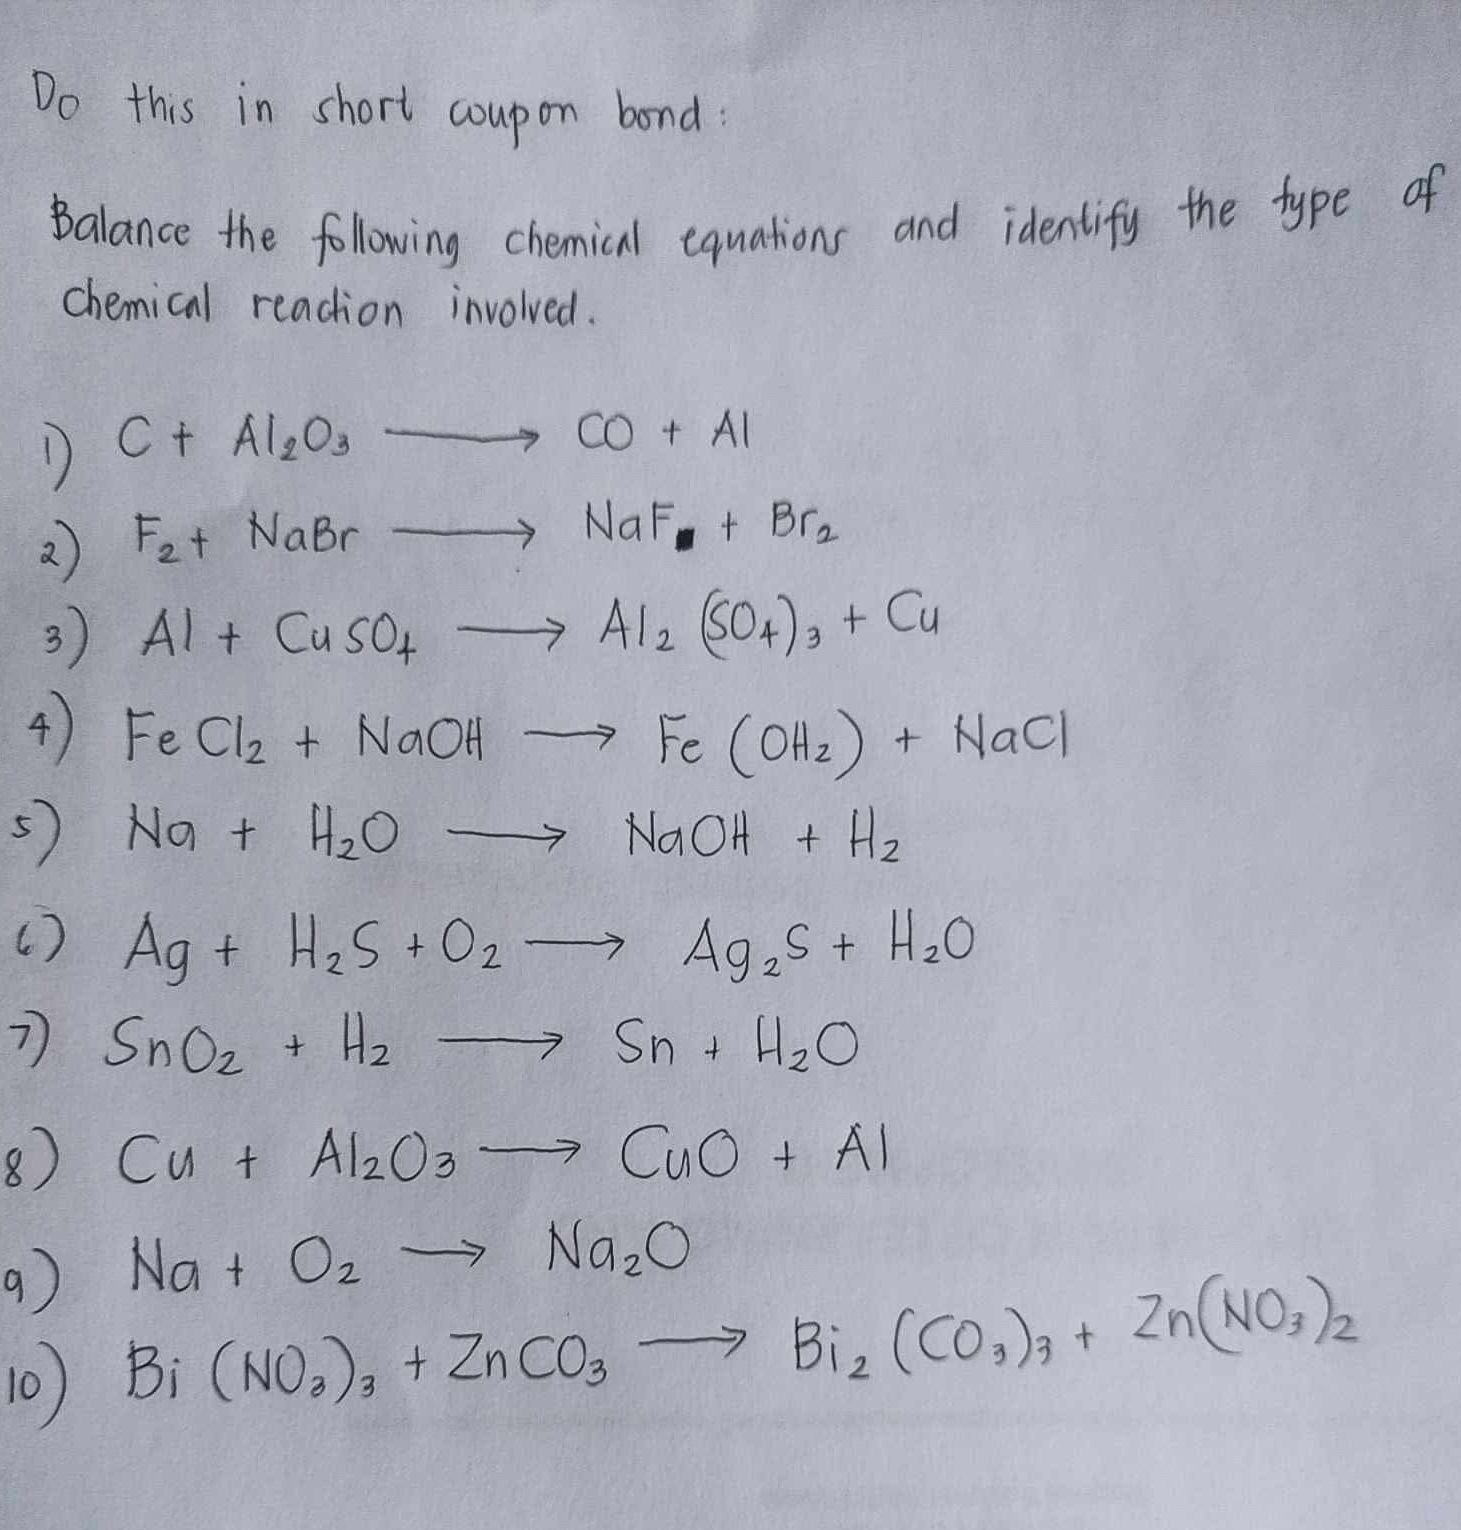 Do this in short coupon bond:
Balance the following chemical equations and identify the type of
chemical reaction involved.
1) C + Al₂O₃ ⟶ CO + Al
2) F₂ + NaBr ⟶ NaF + Br₂
3) Al + CuSO₄ ⟶ Al₂(SO₄)₃ + Cu
4) FeCl₂ + NaOH ⟶ Fe(OH₂) + NaCl
5) Na + H₂O ⟶ NaOH + H₂
6) Ag + H₂S + O₂ ⟶ Ag₂S + H₂O
7) SnO₂ + H₂ ⟶ Sn + H₂O
8) Cu + Al₂O₃ ⟶ CuO + Al
9) Na + O₂ ⟶ Na₂O
10) Bi(NO₃)₃ + ZnCO₃ ⟶ Bi₂(CO₃)₃ + Zn(NO₃)₂